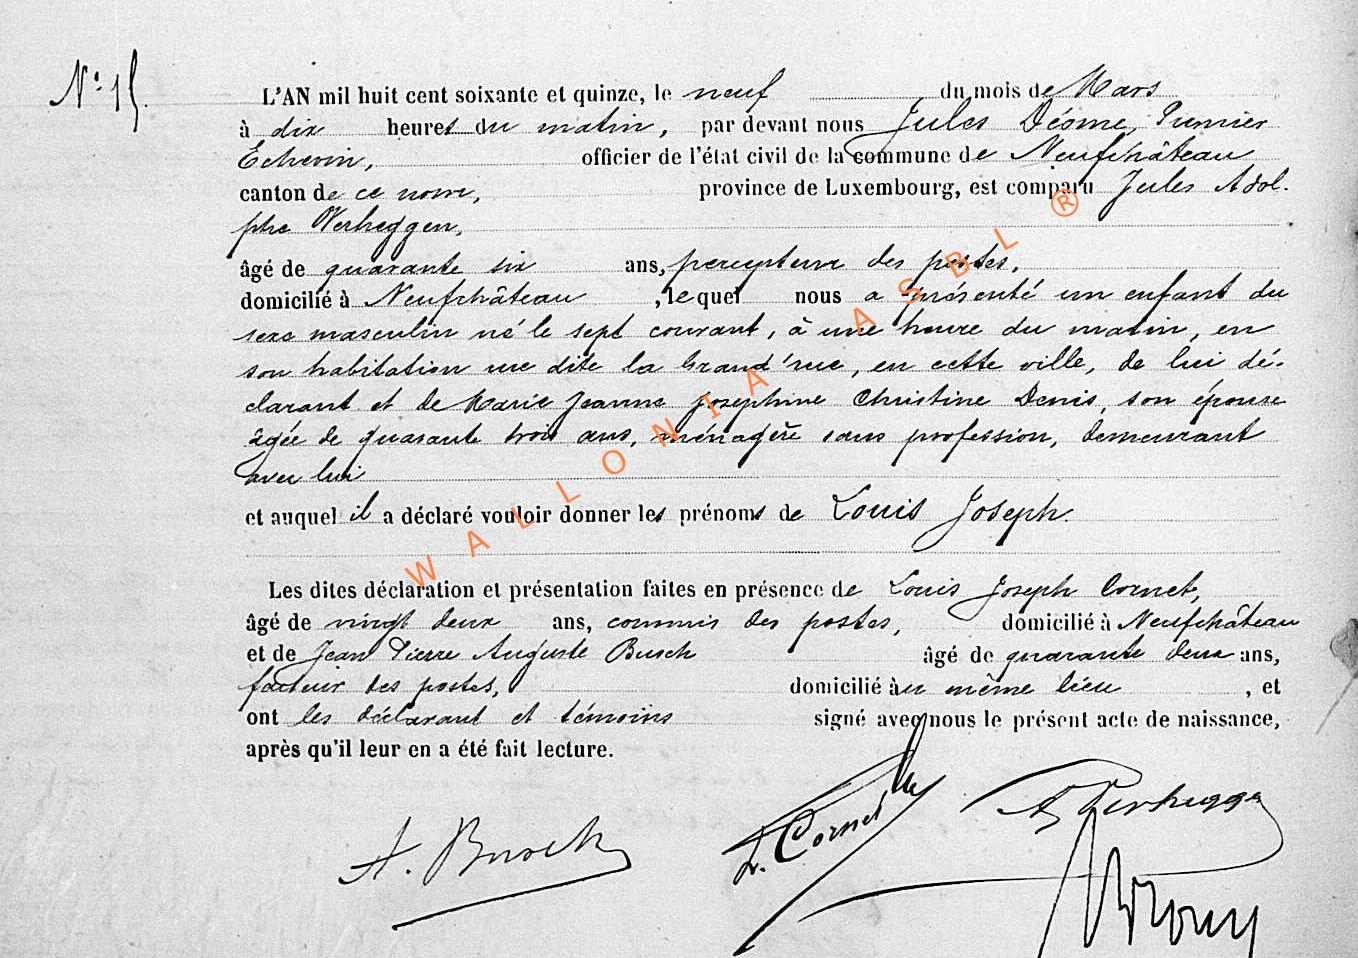 N° 15.
L'AN mil huit cent soixante et quinze, le neuf du mois de Mars
à dix heures du matin, par devant nous Jules Déome, Premier
Echevin, officier de l'état civil de la commune de Neufchâteau
canton de ce nom, province de Luxembourg, est comparu Jules Adol-
phe Verheggen,
âgé de quarante six ans, percepteur des postes,
domicilié à Neufchâteau, lequel nous a présenté un enfant du
sexe masculin né le sept courant, à une heure du matin, en
son habitation rue dite la Grand'rue, en cette ville, de lui dé-
clarant et de Marie Jeanne Josephine Christine Denis, son épouse
âgée de quarante trois ans, ménagère sans profession, demeurant
avec lui
et auquel il a déclaré vouloir donner les prénoms de Louis Joseph.
Les dites déclaration et présentation faites en présence de Louis Joseph Cornet,
âgé de vingt deux ans, commis des postes, domicilié à Neufchâteau
et de Jean Pierre Auguste Busch âgé de quarante deux ans,
facteur des postes, domicilié au même lieu, et
ont les déclarant et témoins signé avec nous le présent acte de naissance,
après qu'il leur en a été fait lecture.
A. Busch L. Cornet A. Verheggen
WALLONIA ASBL ®